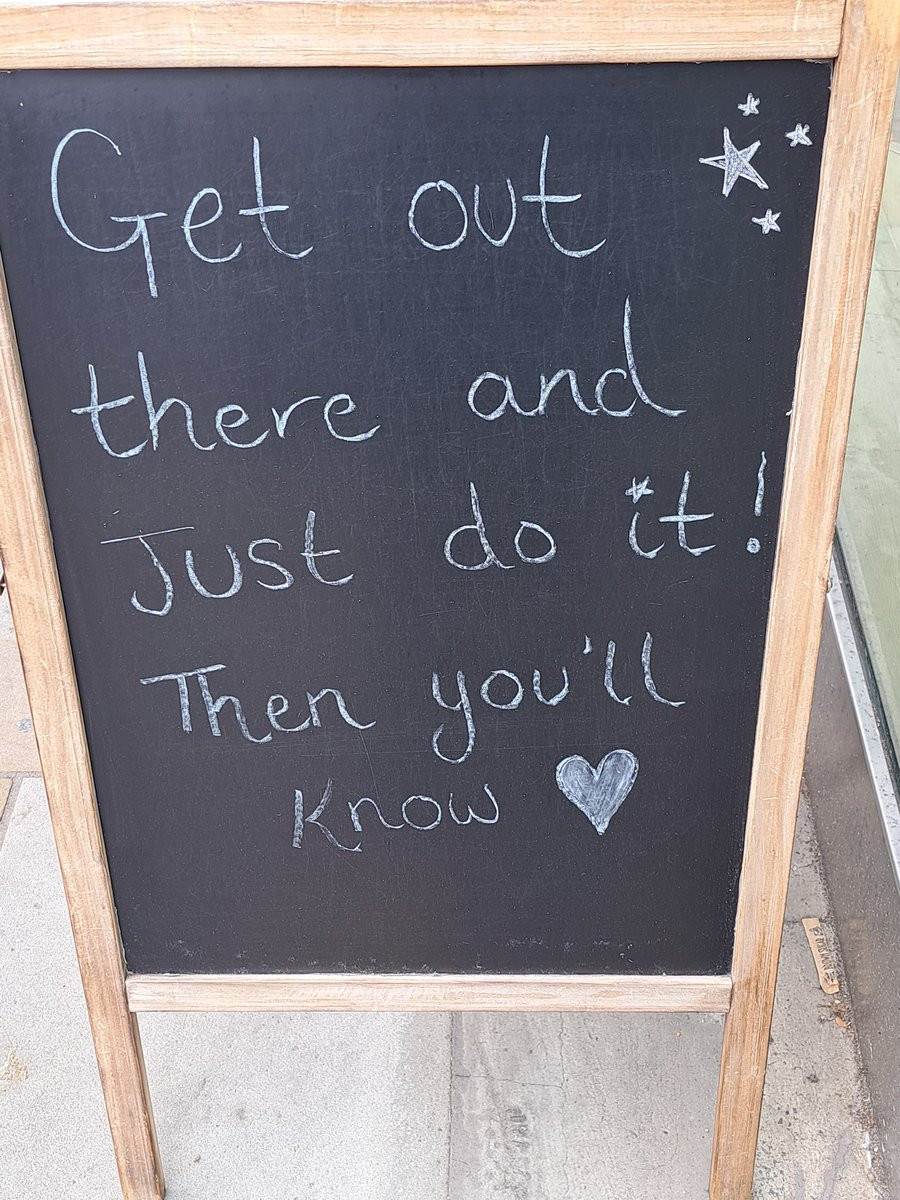 Get out
there and
Just do it!
Then you'll
Know